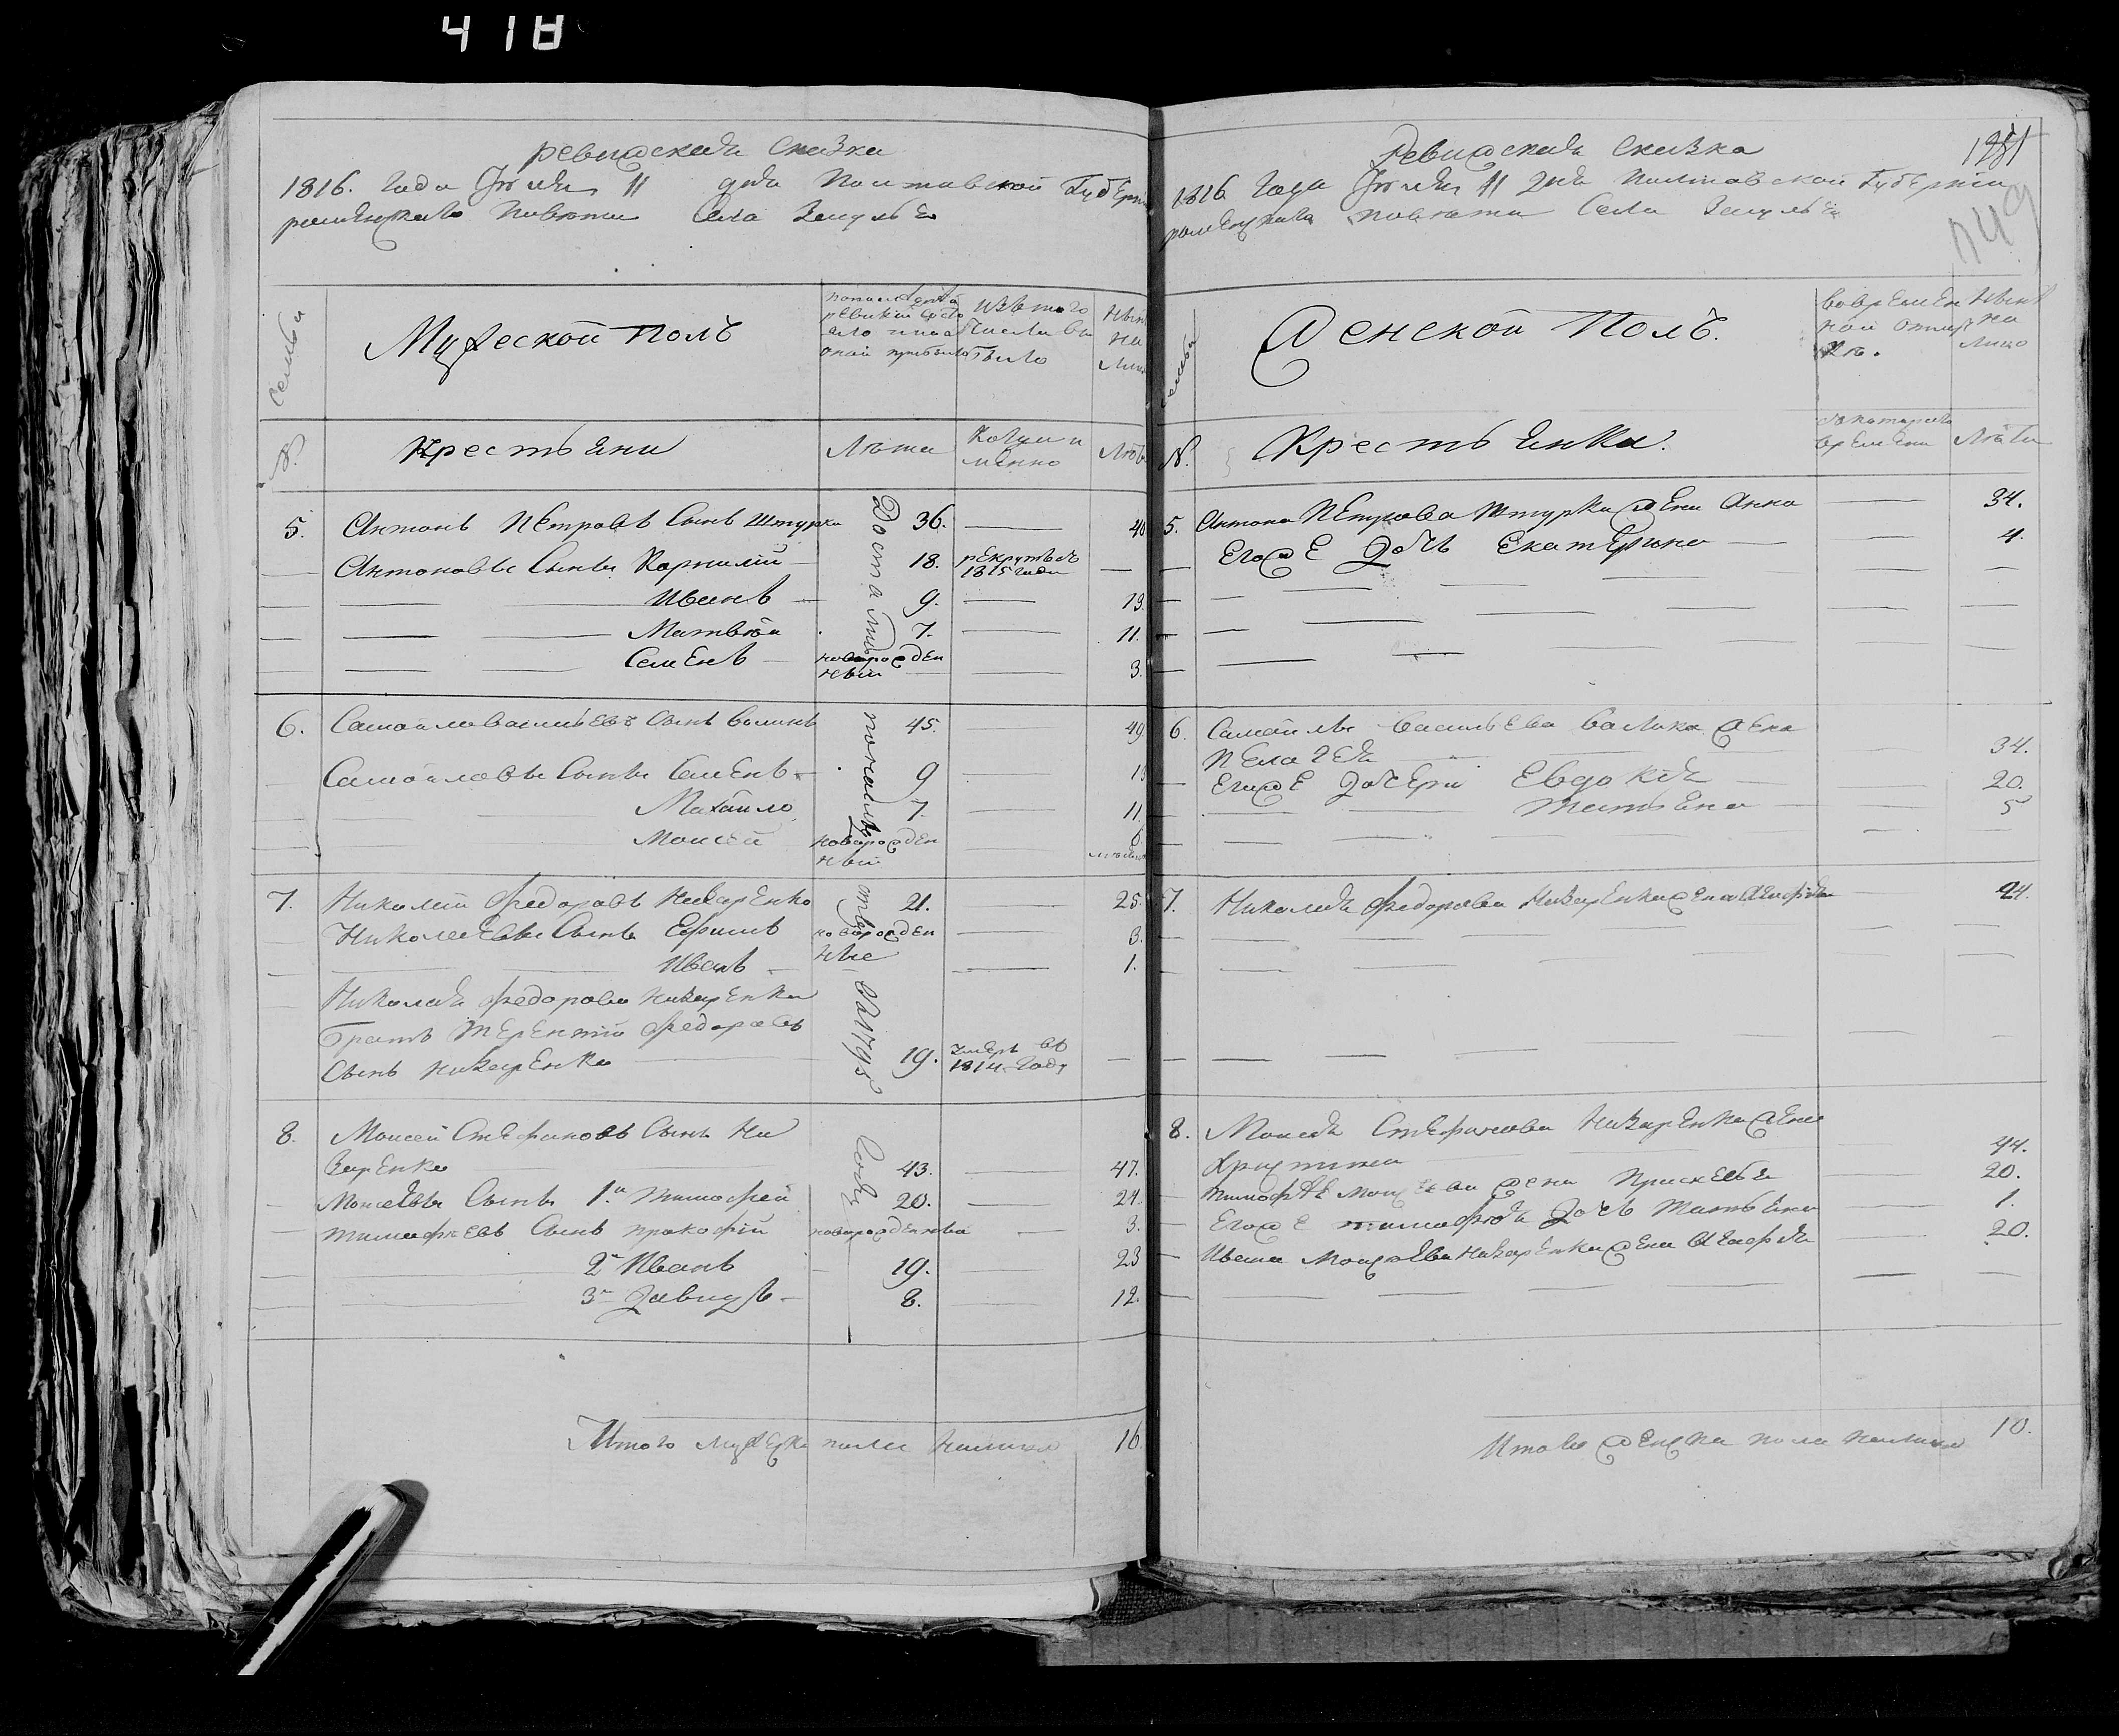 418
ревижская сказка
1816. года Июня 11 дня Полтавской Губерн
роменскаго повета Села Засулья
семьи
Мужеской полъ
по последней
ревизии состо
яло и после
оной прибыло
Изъ того
числа вы
было
Ныне
на
лицо
№.
крестьяни
Лета
Когда и
менно
Лета
5. Антонъ Петровъ Сынъ Штурка 36. 40
Антоновы Сыны Корнилій 18. рекрутъ въ 1815 годе
Иванъ 9. 13.
Матвей 7. 11.
Семенъ новорожден ный 3.
6. Самойло Васильевъ Сынъ Валикъ 45. 49
Самойловы Сыны Семенъ 9 13
Михайло 7. 11.
Моисей новорожден ный 6. месяц
7. Николай Федоровъ Назаренко 21. 25.
Николаевы Сыны Ефимъ новорожден 3.
Иванъ ные 1.
Николая Федорова Назаренка
Братъ Терентій Федоровъ
Сынъ Назаренко 19. Умеръ въ 1814 году
8. Моисей Стефановъ Сынъ На
заренко 43. 47.
Моисеевы Сыны 1.й Тимофей 20. 24.
Тимофеевъ Сынъ прокофій новорожденный 3.
2й Иванъ 19. 23
3й Давидъ 8. 12.
Итого мужеска пола налицо 16
1251
Ревижская сказка
1816 года Июня 11 дня Полтавской Губерніи
роменскаго повета Села Засулья
семьи
Женской Полъ.
Во времен
ной отлуч
ке.
Ныне
на
лицо
№.
Крестьянка.
Съ котораго
времени
Лета
5. Антона Петрова Штурки жена Анна 34.
Егоже Дочь Екатерина 4.
6. Самойлы Васильева Валика жена
Пелагея 34.
Егоже Дочери Евдокія 20.
Татьяна 5
7. Николая Федорова Назаренка жена Агафія 24.
8. Моисея Стефанова Назаренка жена
Христина 44.
Тимофея Моисеева жена Прасковья 20.
Егоже Тимофея Дочь Татьяна 1.
Ивана Моисеева Назаренка жена Агафья 20.
Итого женска пола налицо 10.